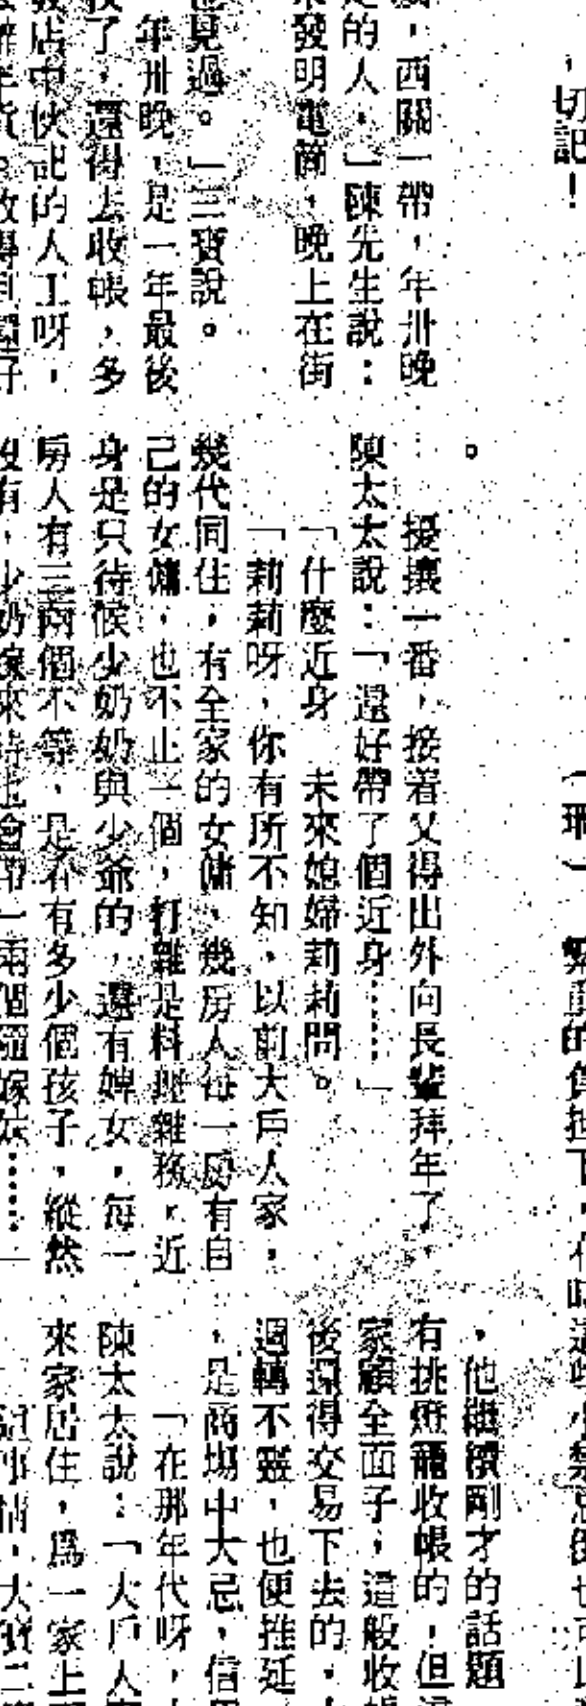 ，切記！
，西關一帶，年卅晚
的人，」陳先生說：
發明電筒，晚上在街
見過。」三寶說。
年卅晚，是一年最後
了，還得去收帳，多
店中伙記的人工呀，
。
擾攘一番，接着又得出外向長輩拜年了，
陳太太說：「還好帶了個近身……」
「什麼近身 未來媳婦莉莉問。
「莉莉呀，你有所不知，以前大戶人家，
幾代同住，有全家的女傭，幾房人每一房有自
己的女傭，也不止一個，打雜是料理雜務，近
身是只待候少奶奶與少爺的，還有婢女，每一
房人有三兩個不等，是看有多少個孩子，縱然
沒有，少奶嫁來時也會帶一兩個隨嫁女……」
，他繼續剛才的話題
有挑燈籠收帳的，但
家顧全面子，這般收
後還得交易下去的，
週轉不靈，也便推延
，是商場中大忌，信
「在那年代呀，
陳太太說：「大戶人
來家居住，為一家上
事情，大